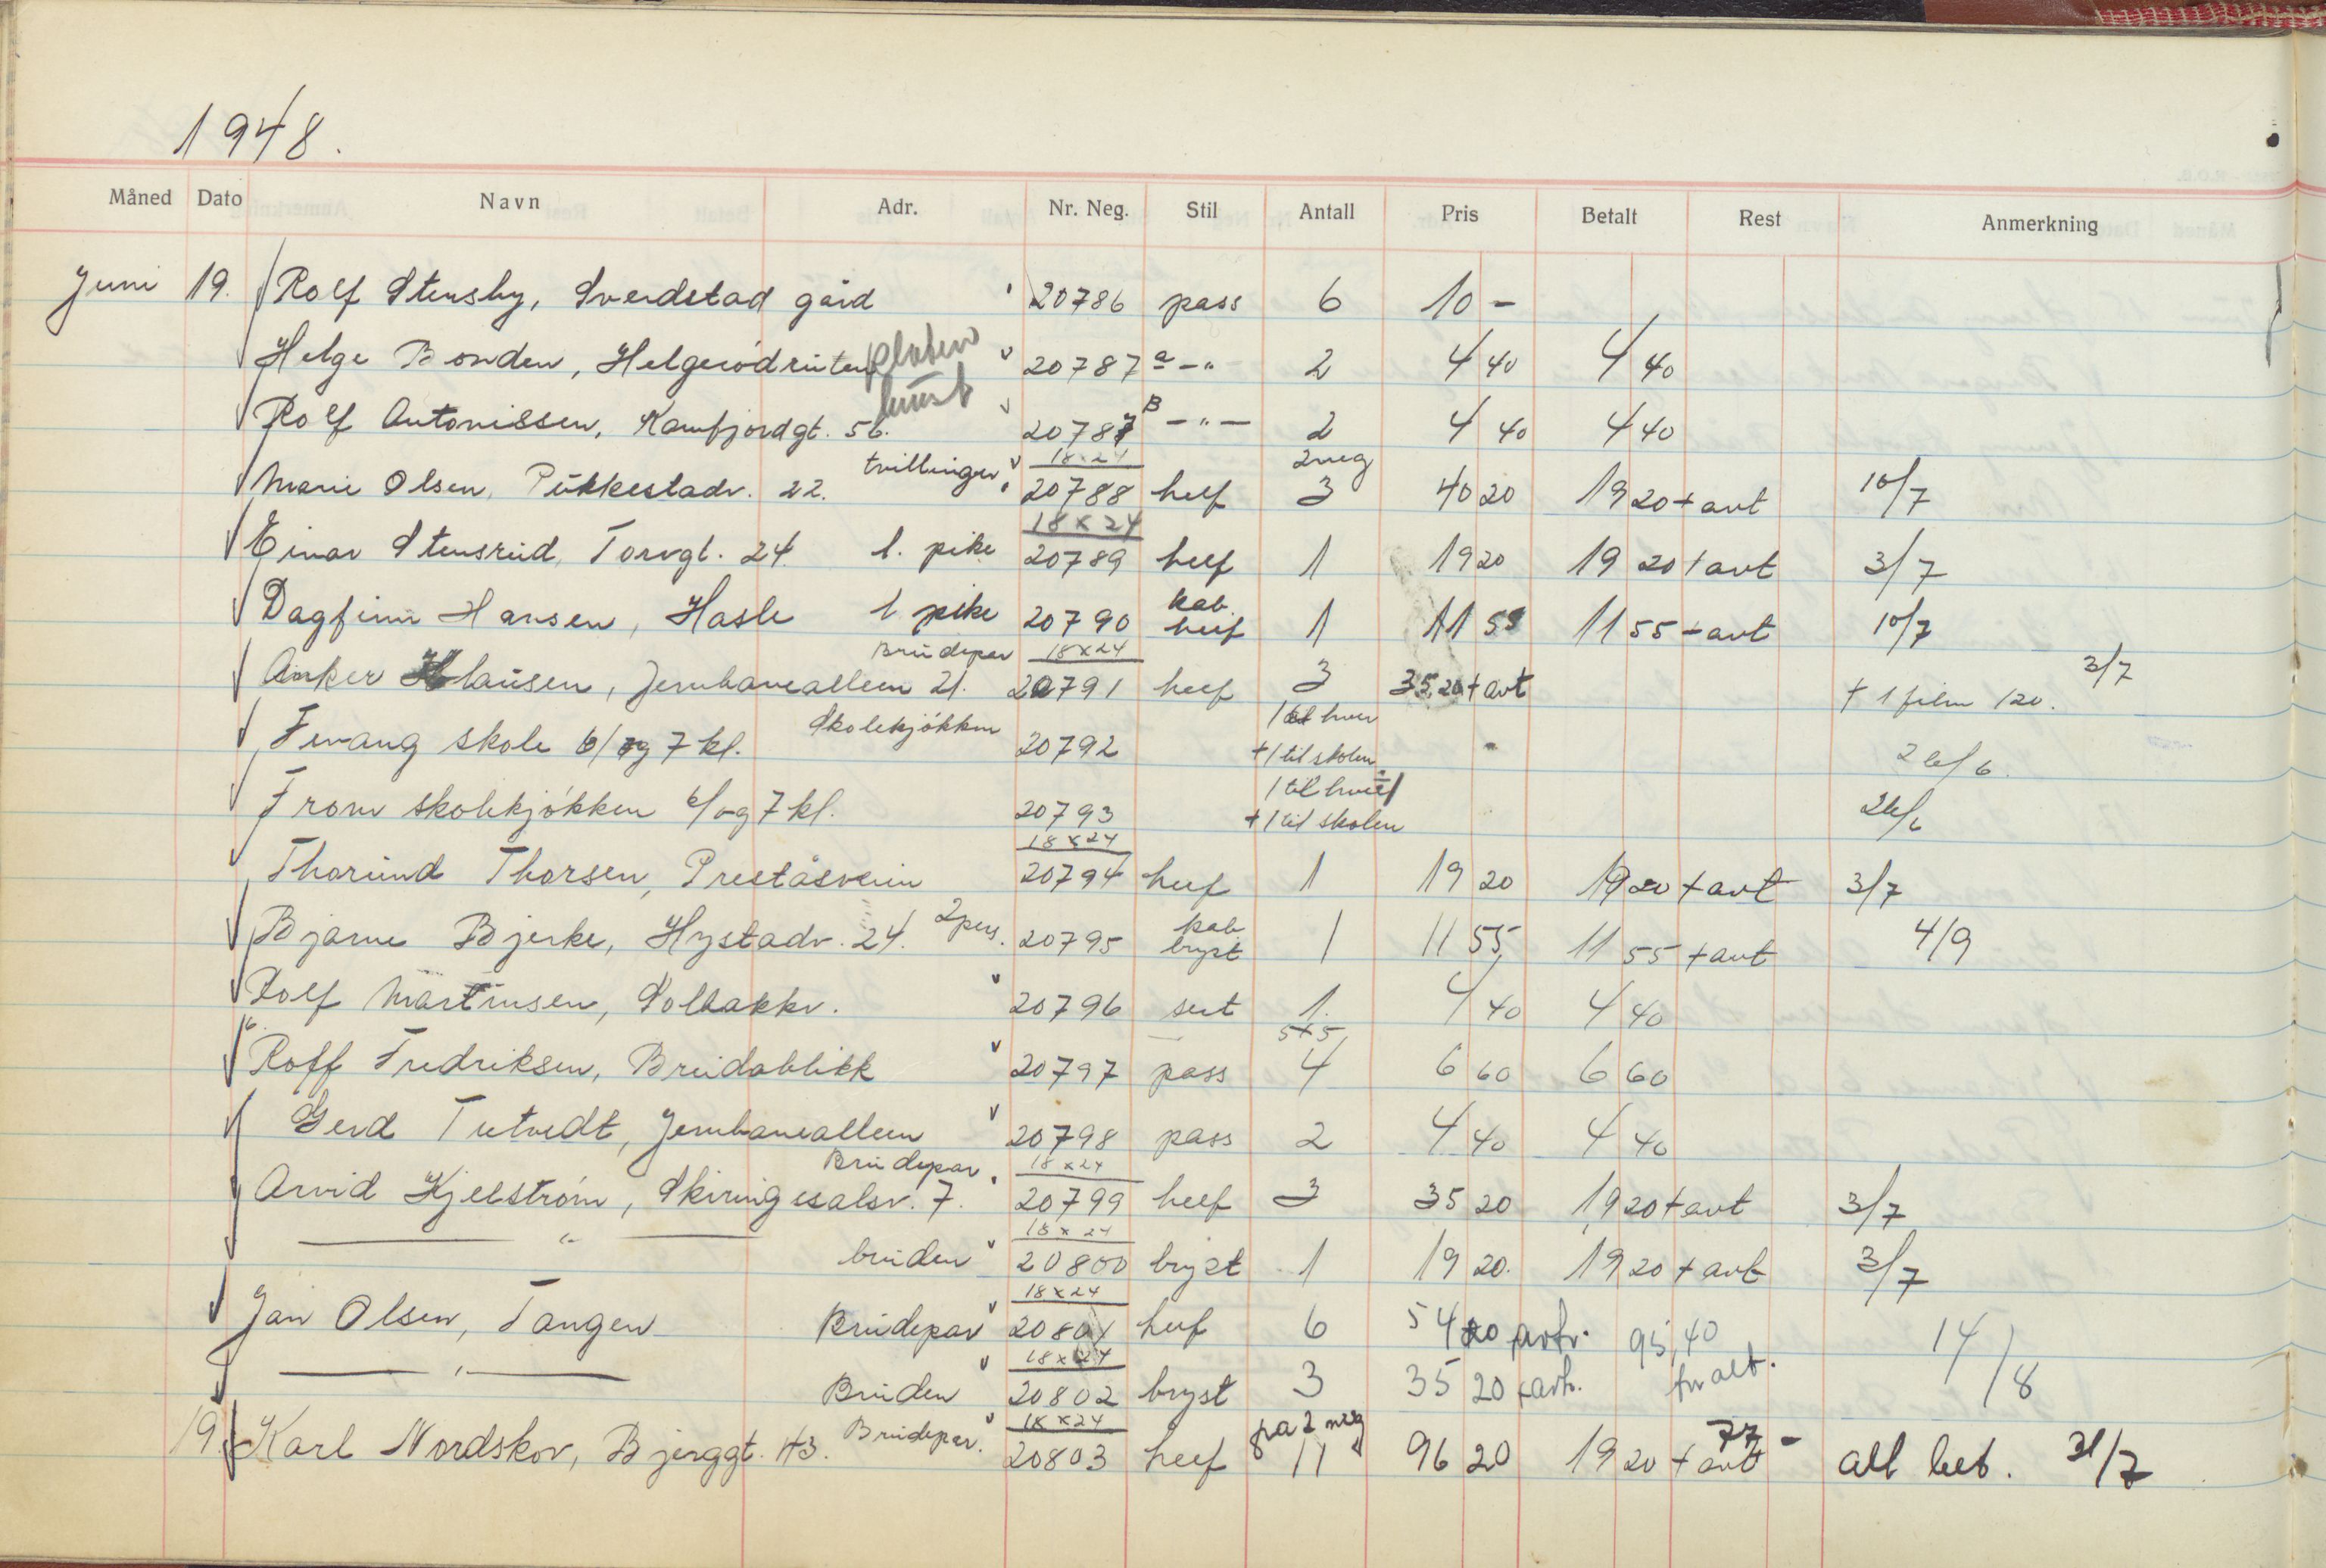 1948.
Måned Dato Navn Adr. Nr. Neg. Stil Antall Pris Betalt Rest Anmerkning
Juni 19. Rolf Stensby, Sverdstad gård 20786 pass 6 10 -
Helge Bonden, Helgerødruten platen 20787 a -"- 2 4 40 4 40
knust
Rolf Antonissen, Kamfjordgt. 5b. 20787 B -"- 2 4 40 4 40
18x24 2 neg
Marie Olsen, Pukkestadv. 22. tvillinger 20788 helf 3 40 20 19 20 + avt 10/7
18x24
Einar Stensrud, Torvgt. 24. 1. pike 20789 helf 1 19 20 19 20 + avt 3/7
kab.
Dagfinn Hansen, Hasle 1 pike 20790 helf 1 11 55 11 55 + avt 10/7
Brudepar 18x24 3/7
Anker Klausen, Jernbanealleen 21. 20791 helf 3 35,20 + avt + 1 film 120.
Skolekjøkken 1 til hver
Fevang skole 6/og 7 kl. 20792 + 1 til skolen 26/6.
1 til hver
From skolekjøkken 6/og 7 kl. 20793 + 1 til skolen 26/6
18x24
Thorund Thorsen, Preståsveien 20794 helf 1 19 20 19 20 + avt 3/7
kab
Bjarne Bjerke, Hystadv. 24. 2 pers. 20795 bryst 1 11 55 11 55 + avt 4/9
Rolf Martinsen, Solbakkv. 20796 seit 1. 4 40 4 40
5x5
Rolf Fredriksen, Breidablikk 20797 pass 4 6 60 6 60
Gerd Tutvedt, Jernbanealleen 20798 pass 2 4 40 4 40
Brudepar 18x24
Arvid Kjellstrøm, Skiringssalsv. 7. 20799 helf 3 35 20 19 20 + avt 3/7
18x24
— " — bruden 20800 bryst 1 19 20. 19 20 + avt 3/7
18x24
Jan Olsen, Tangen Brudepar 20801 helf 6 54 20 avtr. 95,40 14/8
18x24
— " — Bruden 20802 bryst 3 35 20 + avtr. for alt.
18x24 på 2 neg 77 -
19. Karl Nordskov, Bjerggt. 43. Brudepar. 20803 helf 11 96 20 19 20 + avt alt bet. 31/7